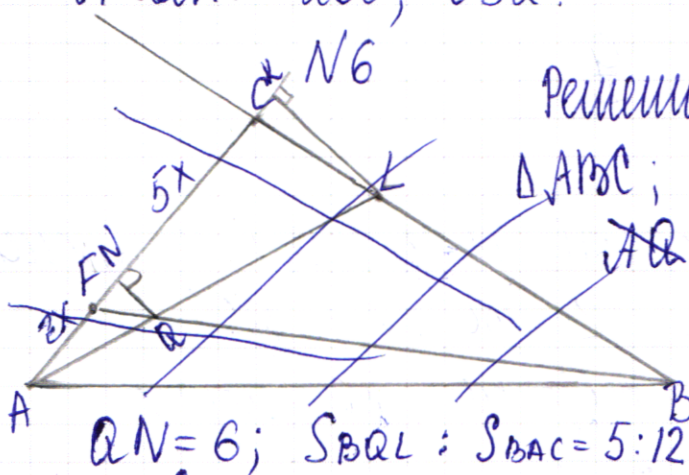 N6
C
K
5x
L
△ABC;
AQ
F
N
2x
Q
A
B
QN = 6; S BQL : S BAC = 5:12